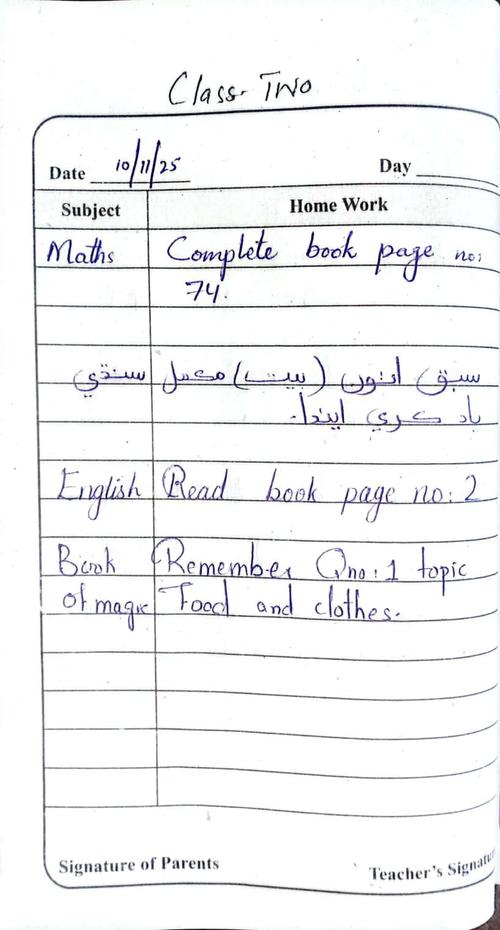 Class- Two
Date 10/11/25 Day
Subject Home Work
Maths Complete book page no:
74.
سنڌي سبق اٺون (بيت) مڪمل
ياد ڪري ايندا.
English Read book page no: 2
Book Remember Qno: 1 topic
of magic Food and clothes.
Signature of Parents Teacher's Signatu